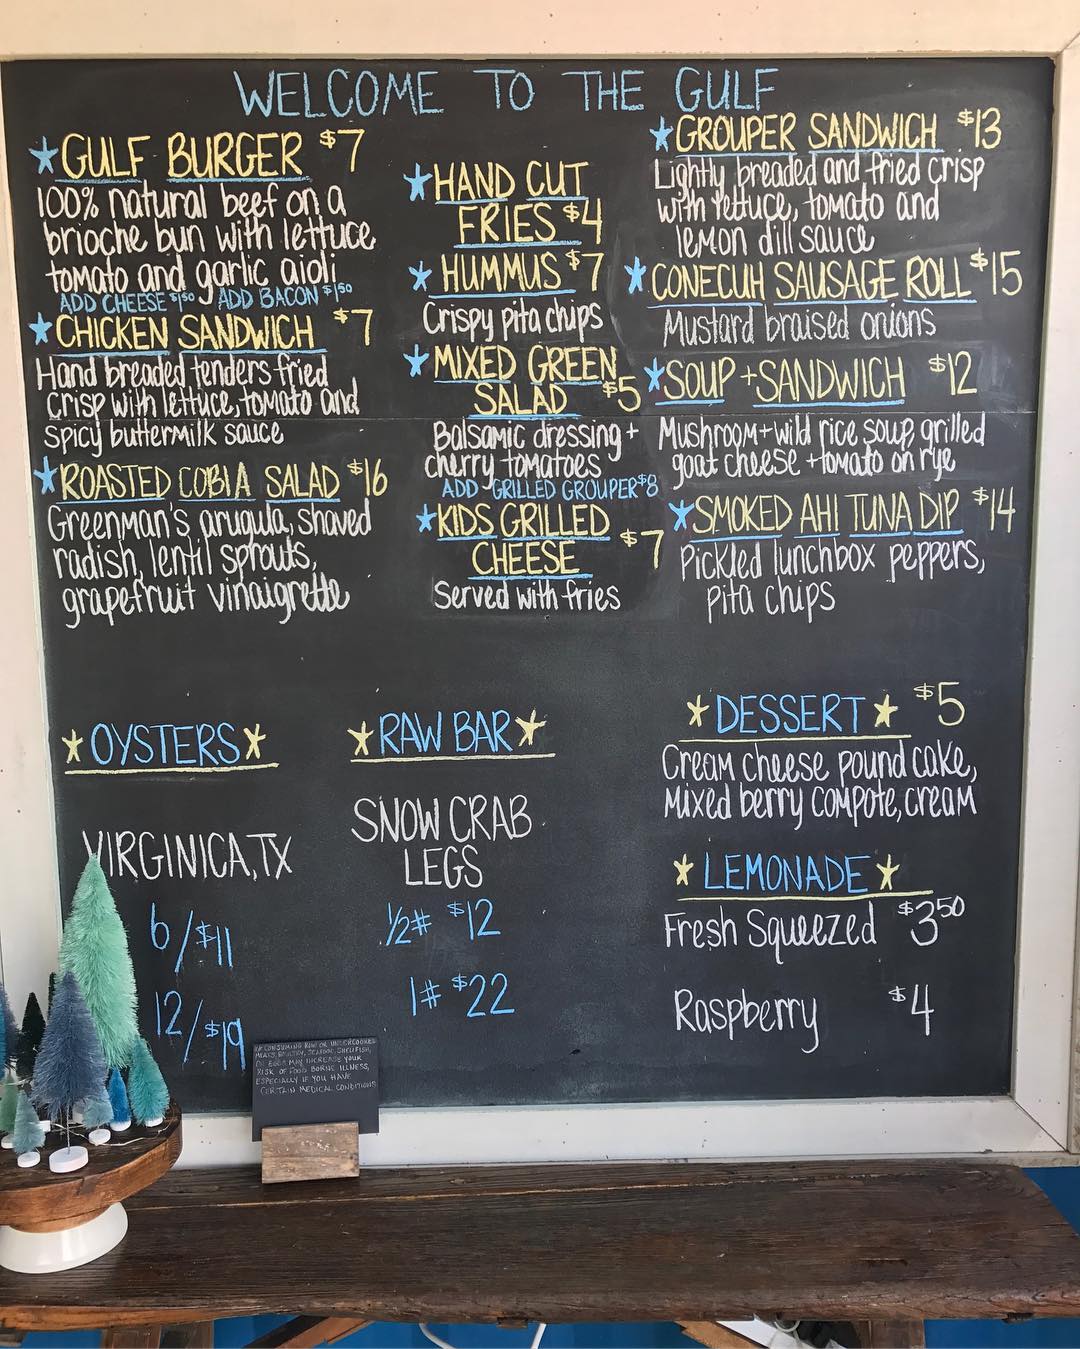 WELCOME TO THE GULF
GULF BURGER $7
100% natural beef on a
brioche bun with lettuce
tomato and garlic aioli
ADD CHEESE $1.50 ADD BACON $1.50
CHICKEN SANDWICH $7
Hand breaded tenders fried
crisp with lettuce, tomato and
spicy buttermilk sauce
ROASTED COBIA SALAD $16
Greenman's arugula, shaved
radish, lentil sprouts,
grapefruit vinaigrette
HAND CUT
FRIES $4
HUMMUS $7
Crispy pita chips
MIXED GREEN
SALAD $5
Balsamic dressing +
cherry tomatoes
ADD GRILLED GROUPER $8
KIDS GRILLED
CHEESE $7
Served with fries
GROUPER SANDWICH $13
Lightly breaded and fried crisp
with lettuce, tomato and
lemon dill sauce
CONECUH SAUSAGE ROLL $15
Mustard braised onions
SOUP + SANDWICH $12
Mushroom + wild rice soup, grilled
goat cheese + tomato on rye
SMOKED AHI TUNA DIP $14
Pickled lunchbox peppers,
pita chips
OYSTERS
VIRGINICA, TX
6/$11
12/$19
RAW BAR
SNOW CRAB
LEGS
1/2# $12
1# $22
DESSERT $5
Cream cheese pound cake,
mixed berry compote, cream
LEMONADE
Fresh Squeezed $3.50
Raspberry $4
CONSUMING RAW OR UNDERCOOKED
MEATS, POULTRY, SEAFOOD, SHELLFISH,
OR EGGS MAY INCREASE YOUR
RISK OF FOOD BORNE ILLNESS,
ESPECIALLY IF YOU HAVE
CERTAIN MEDICAL CONDITIONS